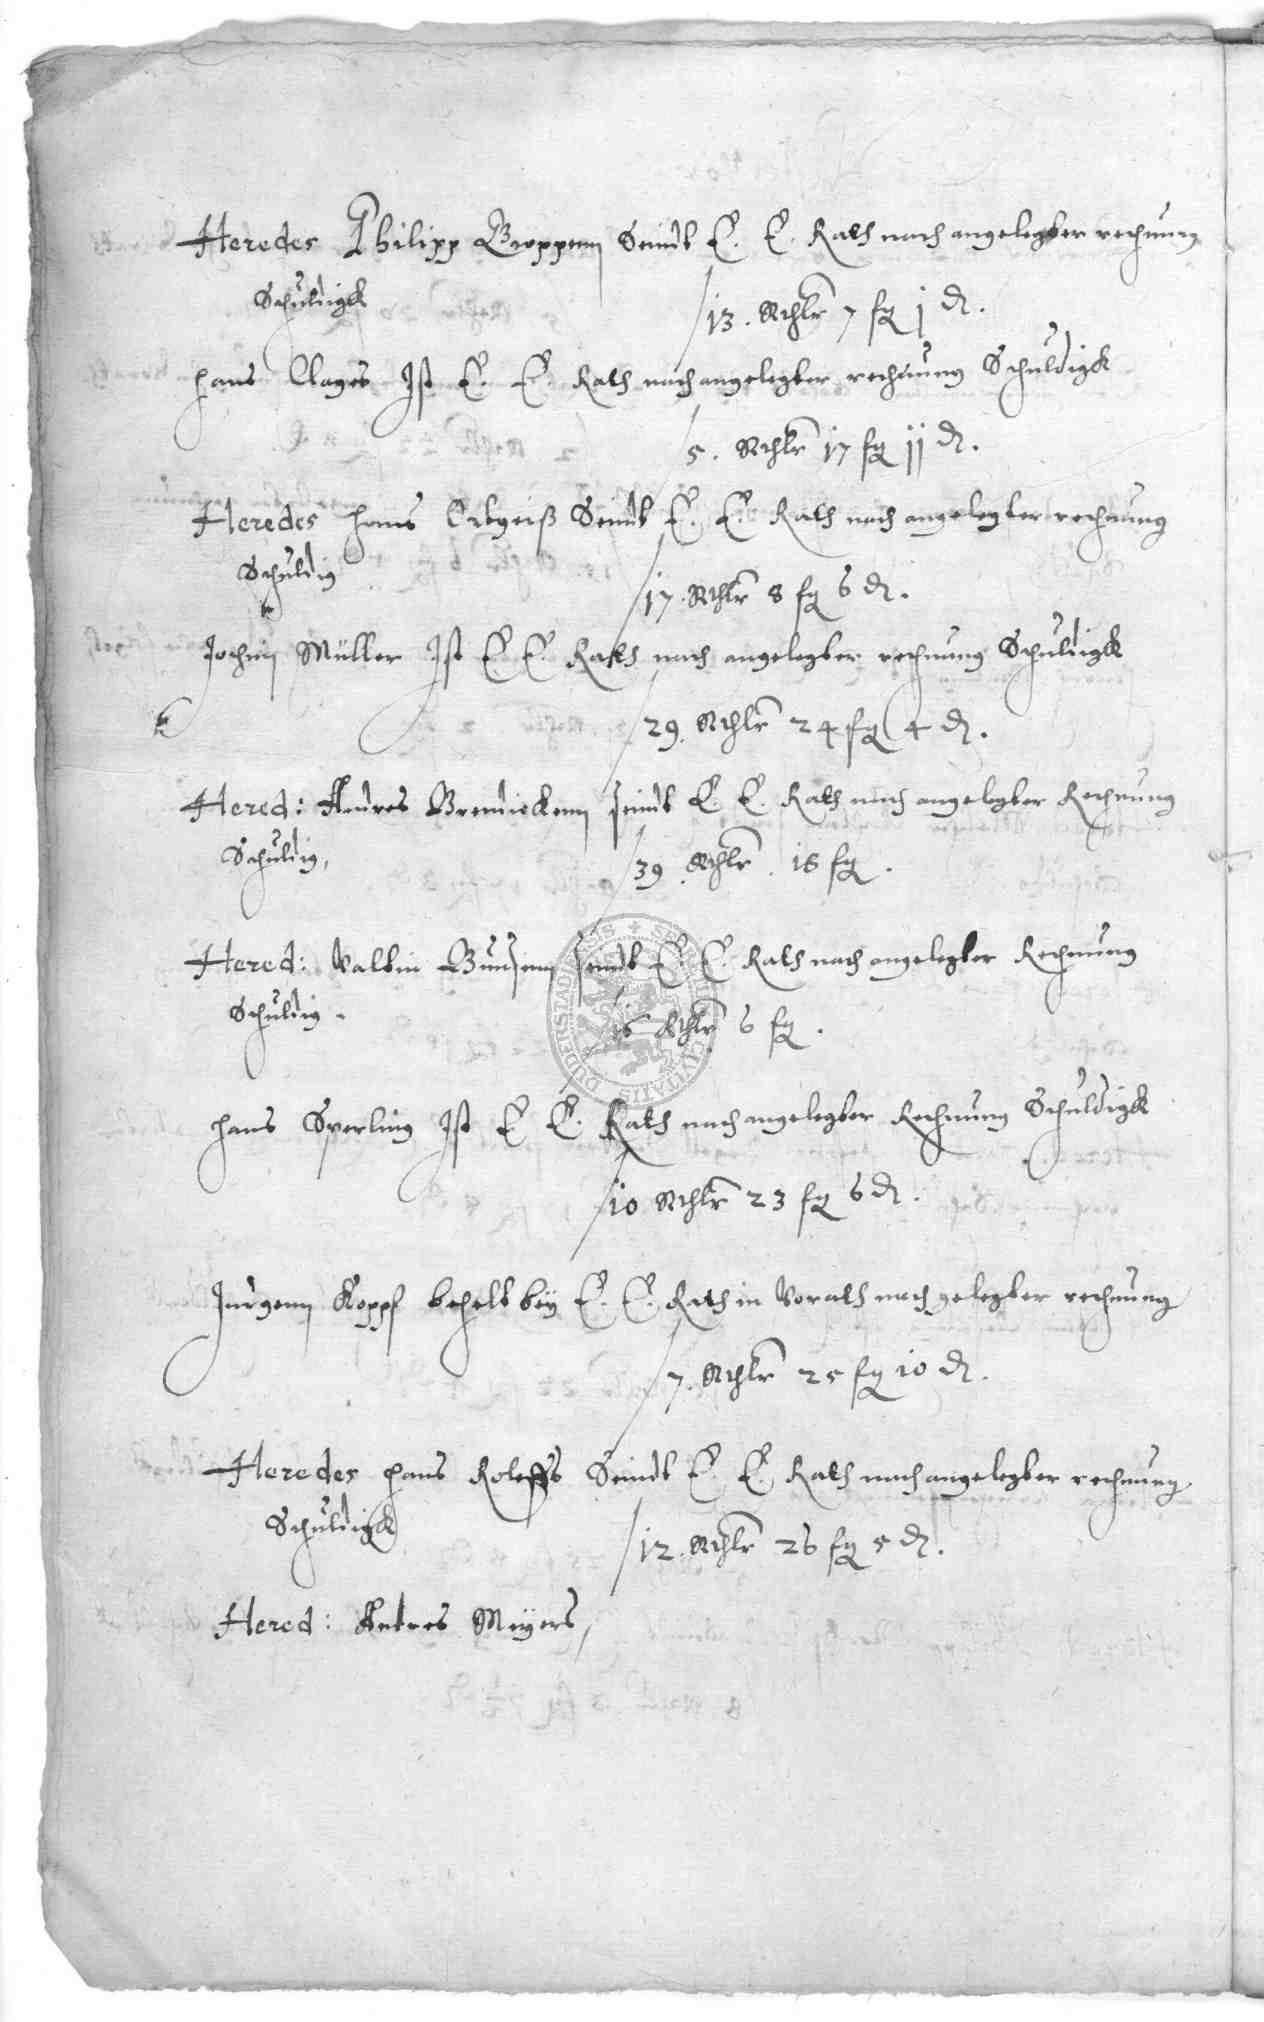 Heredes Philipp Gropenn Seindt E. E. Rath nach angelegter rechnung
Schuldigk
13. Rthlr 7 fg j d.
Hans Clages Ist E. E. Rath nach angelegter rechnung Schuldigk
5. Rthlr 17 fg jj d.
Heredes Hans Seindt E. E. Rath nach angelegter rechnung
Schuldig
17. Rthlr 8 fg 6 d.
Jochim Müller Ist E E. Rath nach angelegter rechnung Schuldigk
29. Rthlr 24 fg 4 d.
Hered: Andres seindt E. E. Rath nach angelegter Rechnung
Schuldig,
39 Rthlr. 18 fg.
Hered: Valtin seindt E. E. Rath nach angelegter Rechnung
Schuldig.
16 Rthlr 6 fg.
Hans Sperling Ist E E. Rath nach angelegter Rechnung Schuldigk
10 Rthlr 23 fg 6 d.
Jurgenn Kopff behelt bey E. E. Rath in Vorath nach gelegter rechnung
7. Rthlr 25 fg 10 d.
Heredes Hans Roleffs Seindt E. E. Rath nach angelegter rechnung
Schuldigk
12. Rthlr 26 fg 5 d.
Hered: Andres Meyers,